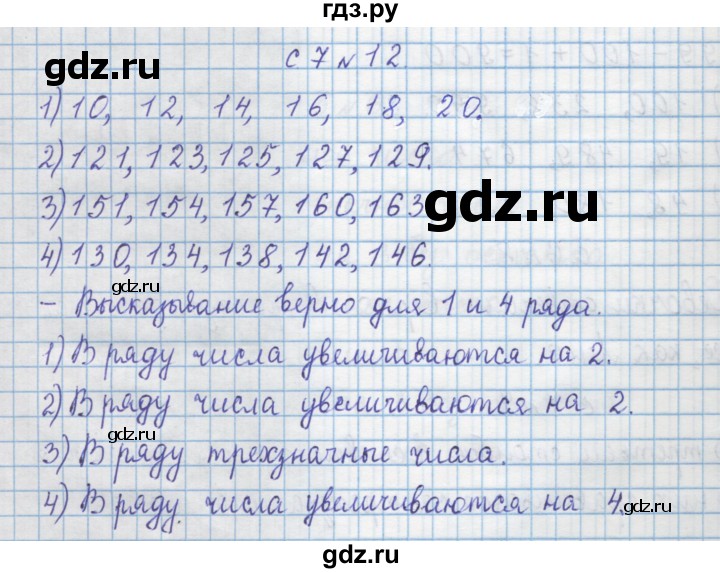 гдз.ру
с 7 № 12.
gdz.ru
1) 10, 12, 14, 16, 18, 20.
2) 121, 123, 125, 127, 129.
3) 151, 154, 157, 160, 163
gdz.ru
4) 130, 134, 138, 142, 146.
gdz.ru
- Высказывание верно для 1 и 4 ряда.
1) В ряду числа увеличиваются на 2.
2) В ряду числа увеличиваются на 2.
gdz.ru
3) В ряду трехзначные числа.
4) В ряду числа увеличиваются на 4.
gdz.ru
gdz.ru